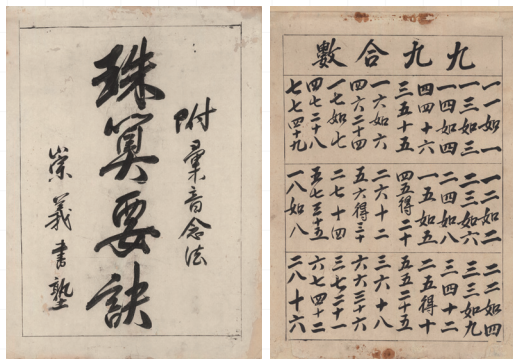 附彙音念法
珠算要訣
崇義書塾
九九合數
一一如一
一二如二
二二如四
一三如三
二三如六
三三如九
一四如四
二四如八
三四十二
四四十六
一五如五
二五得十
三五十五
四五得二十
五五二十五
一六如六
二六十二
三六十八
四六二十四
五六得三十
六六三十六
一七如七
二七十四
三七二十一
四七二十八
五七三十五
六七四十二
七七四十九
一八如八
二八十六